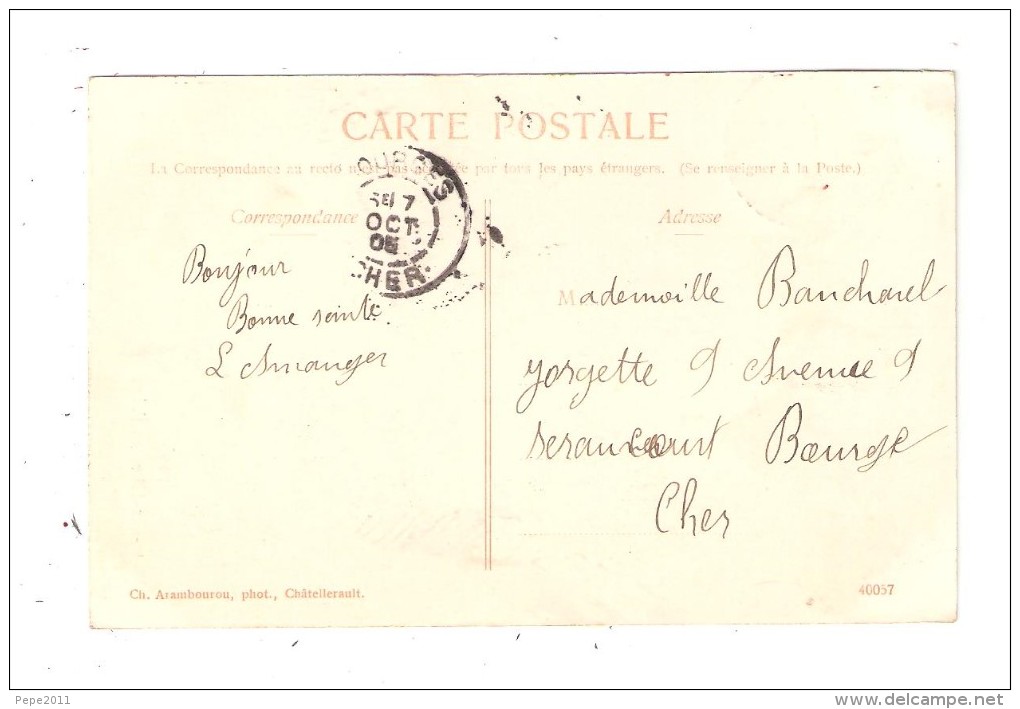 CARTE POSTALE
La Correspondance au recto n'est pas par tous les pays étrangers. (Se renseigner à la Poste.)
BOURGES
7
OCT
05
CHER.
Correspondance
Bonjour
Bonne sainte
L Amanger
Adresse
Mademoille Bancharel
yorgette 9 Avenue 9
seraucourt Bourge
Cher
Ch. Arambourou, phot., Châtellerault.
40057
Pepe2011
www.delcampe.net